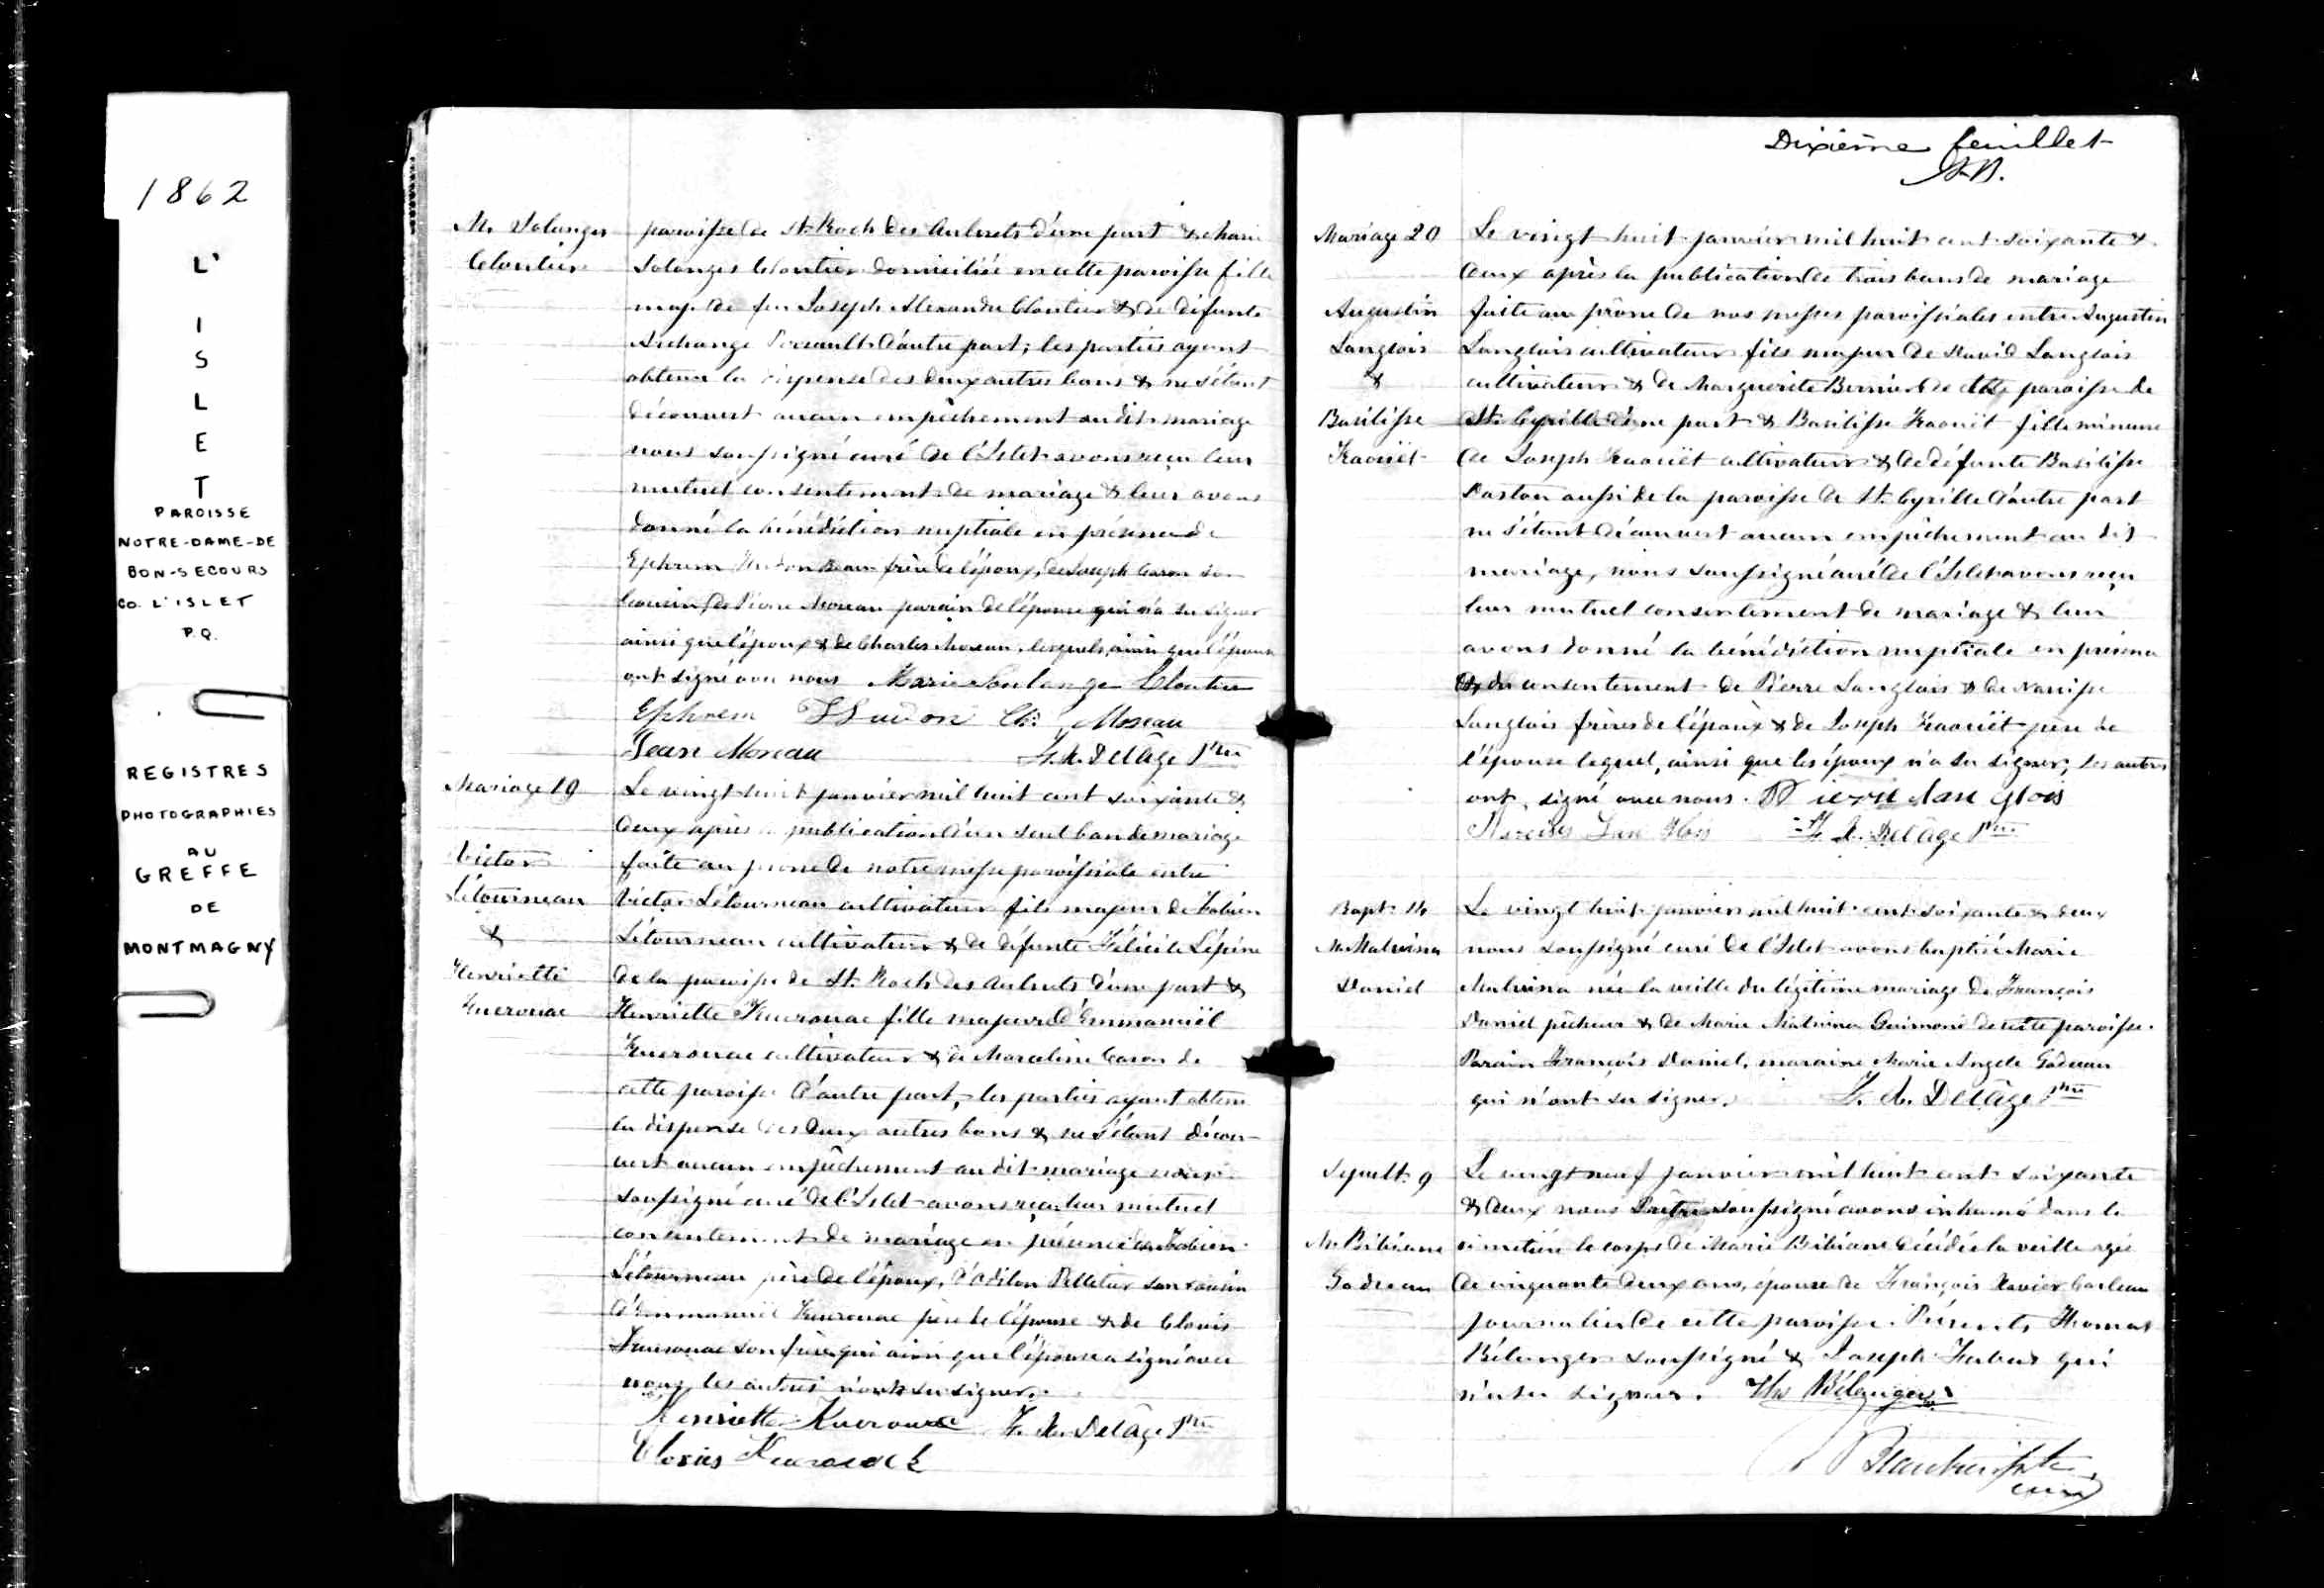 1862
L'
I
S
L
E
T
PAROISSE
NOTRE-DAME-DE
BON-SECOURS
CO. L'ISLET
P.Q.
REGISTRES
PHOTOGRAPHIES
AU
GREFFE
DE
MONTMAGNY
M. Solanges
Cloutier
paroisse de St. Roch des Aulnets d'une part & Marie
Solanges Cloutier domiciliée en cette paroisse fille
maj. de feu Joseph Alexandre Cloutier & de défunte
Archange d'autre part; les parties ayant
obtenu la dispense des deux autres bans & ne s'étant
découvert aucun empêchement au dit mariage
nous soussigné curé de l'Islet avons reçu leur
mutuel consentement de mariage & leur avons
donné la bénédiction nuptiale en présence de
Ephrem Hudon frère de l'époux, de Joseph Caron son
cousin, de Pierre Moreau parain de l'épouse qui n'a su signer
ainsi que l'époux & de Charles Moreau, lesquels ainsi que l'épouse
ont signé avec nous Marie Soulange Cloutier
Ephrem Hudon Chs Moreau
Jean Moreau F. X. Delâge Ptre
Mariage 19
Victor
Létourneau
&
Henriette
Kuerouac
Le vingt huit janvier mil huit cent soixante &
deux après la publication d'un seul ban de mariage
faite au prone de notre messe paroissiale entre
Victor Létourneau cultivateur fils majeur de Fabien
Létourneau cultivateur & de défunte Félicité Lépine
de la paroisse de St. Roch des Aulnets d'une part &
Henriette Kuerouac fille majeure d'Emmanuël
Kuerouac cultivateur & de Marceline Caron de
cette paroisse d'autre part, les parties ayant obtenu
la dispense des deux autres bans & ne s'étant décou-
vert aucun empêchement au dit mariage nous
soussigné curé de l'Islet avons reçu leur mutuel
consentement de mariage en présence de Fabien
Létourneau père de l'époux, d'Odilon Pelletier son cousin
d'Emmanuël Kuerouac père de l'épouse & de Clovis
Kuerouac son frère qui ainsi que l'épouse a signé avec
nous, les autres n'ont su signer.
Henriette Kuerouac F. X. Delâge Ptre
Clovis Kuerouack
Dixième feuillet
Mariage 20
Augustin
Langlois
&
Basilisse
Kaouët
Le vingt huit janvier mil huit cent soixante &
deux après la publication de trois bans de mariage
faite au prône de nos messes paroissiales entre Augustin
Langlois cultivateur fils majeur de David Langlois
cultivateur & de Marguerite Bernier de paroisse de
St. Cyrille d'une part & Basilisse Kaouët fille mineure
de Joseph Kaouët cultivateur & de défunte Basilisse
aussi de la paroisse de St. Cyrille d'autre part
ne s'étant découvert aucun empêchement au dit
mariage, nous soussigné curé de l'Islet avons reçu
leur mutuel consentement de mariage & leur
avons donné la bénédiction nuptiale en présence
& du consentement de Pierre Langlois & de Narcisse
Langlois frères de l'époux & de Joseph Kaouët père de
l'épouse lequel, ainsi que les époux n'a su signer, les autres
ont signé avec nous. Pierre Lan glois
Narcisse Lan glois F. X. Delâge Ptre
Bapt. 14
M. Malvina
Daniel
Le vingt huit janvier mil huit cent soixante & deux
nous soussigné curé de l'Islet avons baptisé Marie
Malvina née la veille du légitime mariage de François
Daniel pêcheur & de Marie Malvina Guimond de cette paroisse.
Parain François Daniel, maraine Marie Angèle Godreau
qui n'ont su signer. F. X. Delâge Ptre
Sepult. 9
M. Bibiane
Godreau
Le vingt neuf janvier mil huit cent soixante
& deux nous Prêtre soussigné avons inhumé dans le
cimetière le corps de Marie Bibiane décédée la veille agée
de cinquante deux ans, épouse de François Xavier
journalier de cette paroisse. Présents Thomas
Bélanger soussigné & Joseph qui
n'a su signer. Ths Bélanger